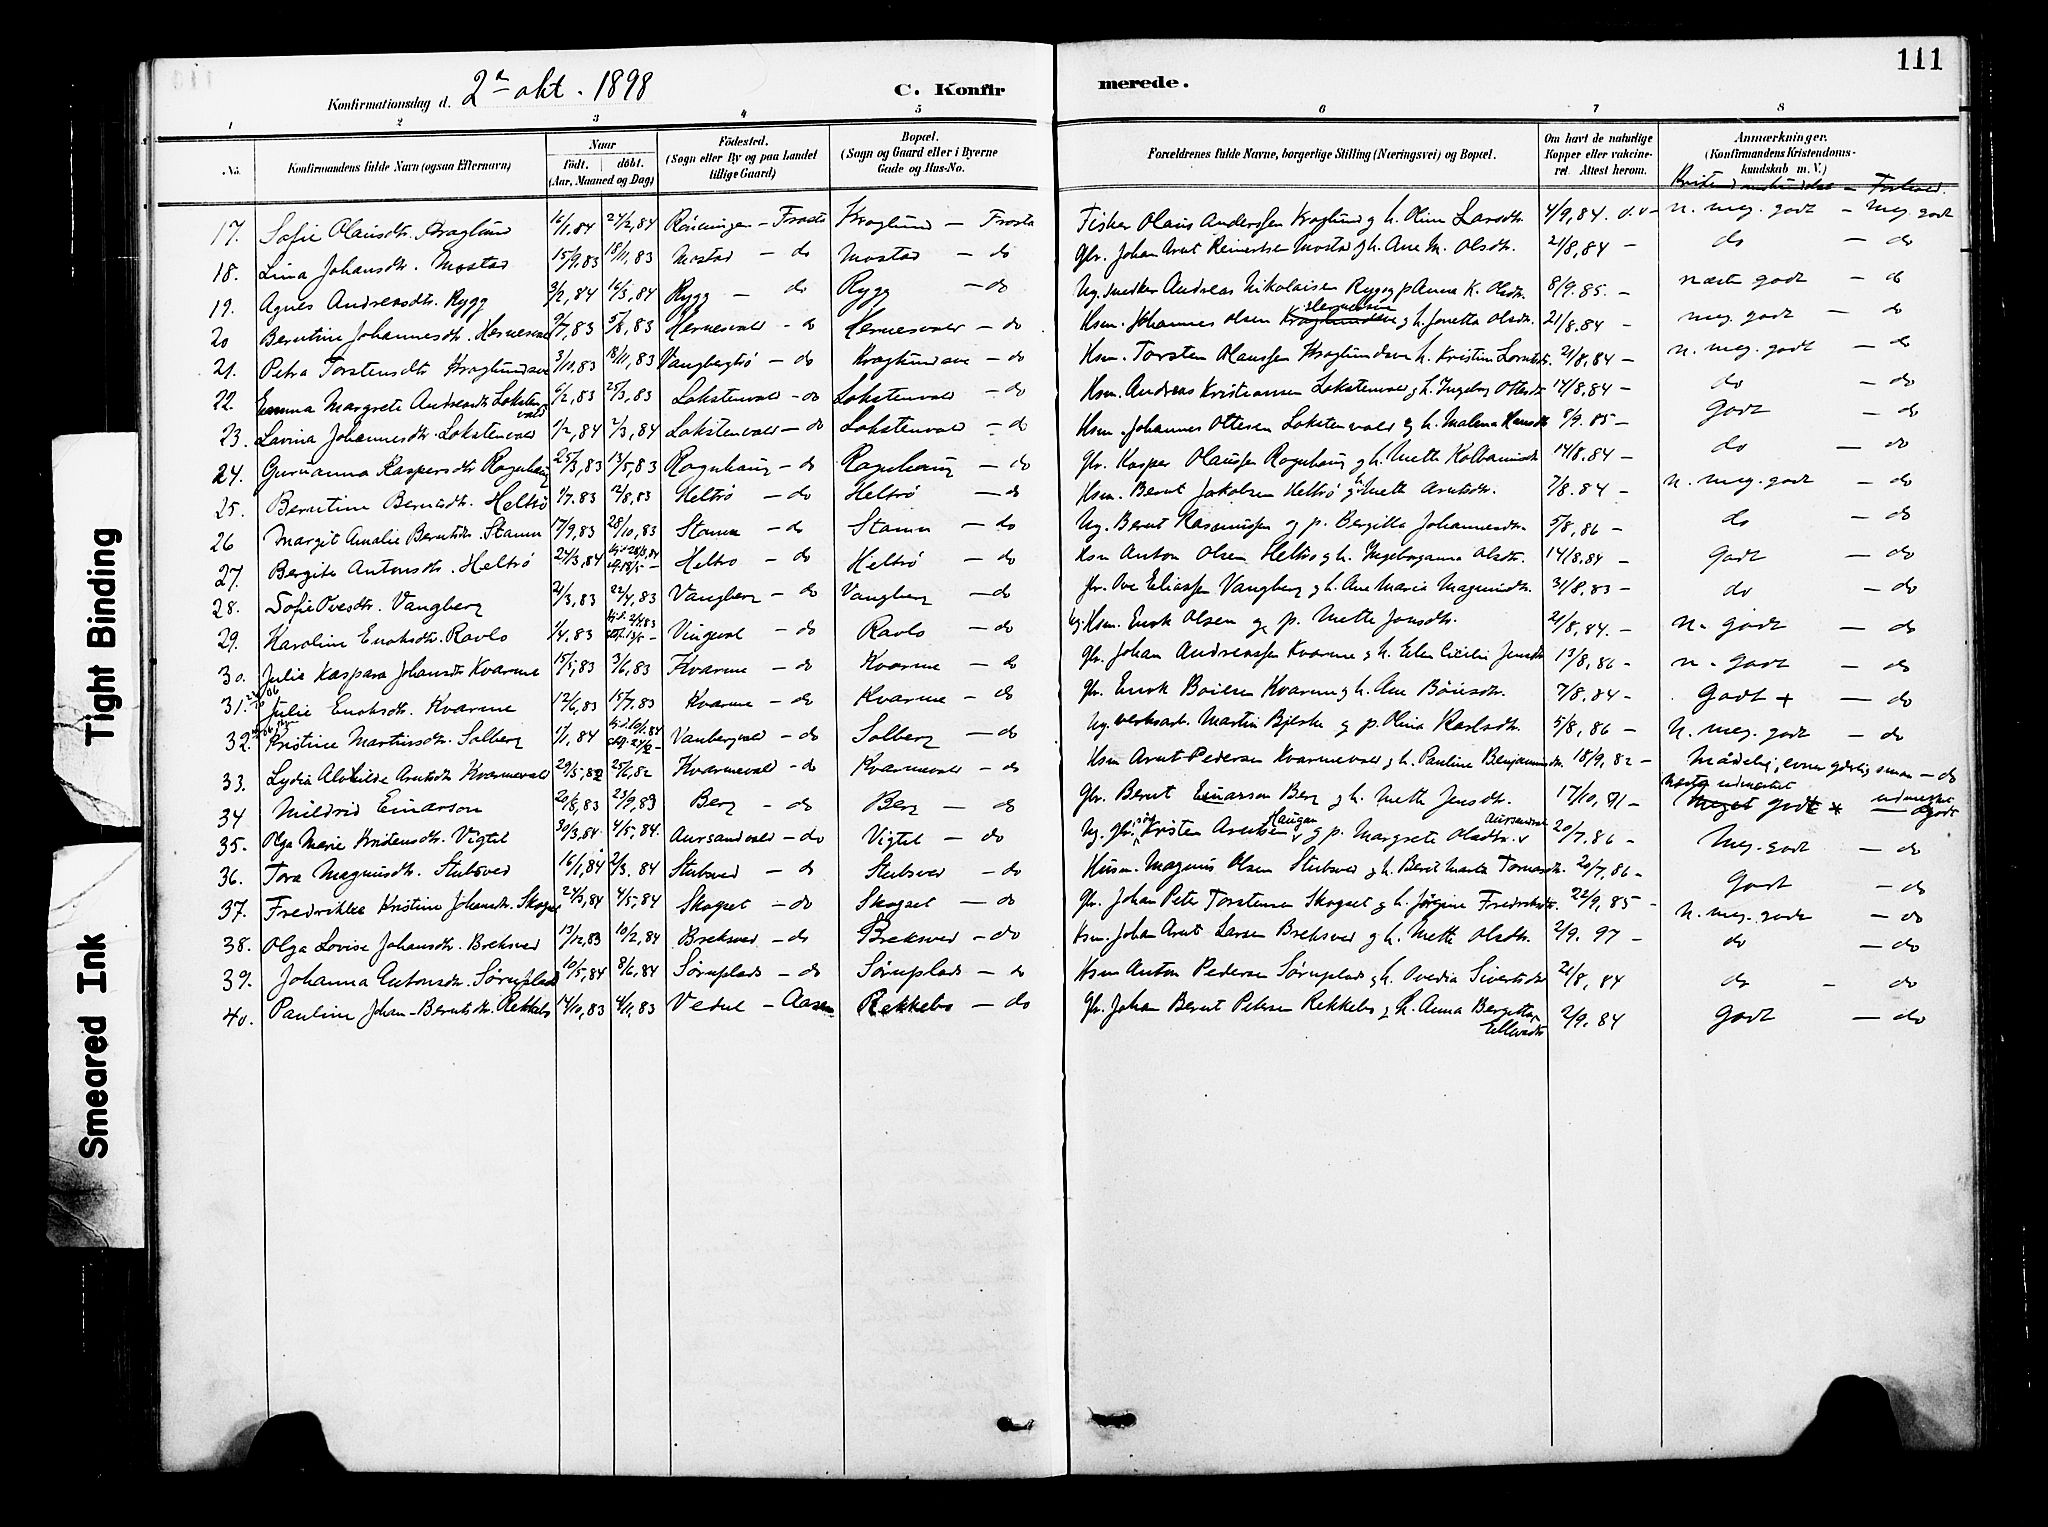 111
Konfirmationsdag d. 2den okt. 1898 C. Konfirmerede.
1 2 3 4 5 6 7 8
No. Konfirmandens fulde Navn (ogsaa Efternavn) Naar født. døbt. (Aar, Maaned og Dag) Fødested. (Sogn eller By og paa Landet tillige Gaard) Bopæl. (Sogn og Gaard eller i Byerne Gade og Hus-No. Forældrenes fulde Navne, borgerlige Stilling (Næringsvei) og Bopæl. Om havt de naturlige Kopper eller vakcineret. Attest herom. Anmærkninger. (Konfirmandens Kristendomskundskab m. V.)
Kristendomskundskab — Forhold.
17. Sofie Olausdtr. Kraglund 16/1,84 24/2,84 Frosta Kraglund — Frosta Fisker Olaus Anderssen Kraglund g h. Oline Larsdtr. 4/9,84. d.v— n. meg. godt — meg godt
18. Lina Johansdtr. Mostad 15/9,83 18/11,83 Mostad — do Mostad — do Gbr. Johan Arnt Reinertsen Mostad g h. Ane M. Olsdtr. 21/8,84 — do — do
19. Agnes Andreasdtr. Rygg 3/2,84 16/3,84 Rygg — do Rygg — do Ug. snedker Andreas Nikolaisen Rygg g p Anna K. Olsdtr. 8/9.85. — næsten godt — do
20 Berntine Johannesdtr. Hernesvald 9/7,83 5/8,83 Hernesvald — do Hernesvald — do Hsm. Johannes Olsen Hernesvald g h. Jonetta Olsdtr. 21/8.84 — meg. godt — do
21. Petra Torstensdtr Kraglundsve 3/10,83 18/11,83 Vangbergtrö — do Kraglundsve — do Hsm. Torsten Olaussen Kraglundsve h. Kristin Lorntsdtr. 21/8,84 — n. meg. godt — do
22. Emma Margrete Andreasdtr Lokstenvald 6/2,83 25/3,83 Lokstenvald — do Lokstenvald — do Hsm. Andreas Kristiansen Lokstenvald g h. Ingeborg Ottersdtr 14/8,84 — do — do
23. Lavina Johannesdtr. Lokstenvald 1/2,84 2/3,84 Lokstenvald — do Lokstenvald — do Hsm. Johannes Ottesen Lokstenvald g h. Malena Hansdtr 8/9.85 — Godt — do
24. Gurianna Kaspersdtr Ragnhaug 25/3,83 13/5,83 Ragnhaug — do Ragnhaug — do Gbr. Kasper Olaussen Ragnhaug g h. Mette Kolbanusdtr 14/8.84 — do — do
25. Berntine Berntsdtr. Heltrö 1/7.83 12/8,83 Heltrö — do Heltrö — do Hsm. Bernt Jakobsen Heltrö g h Mette Arntsdtr. 7/8.84 — n. meg. godt — do
26 Margit Amalie Berntsdtr. Stamn 17/9,83 28/10,83 Stamn — do Stamn — do Ug. Bernt Rasmussen g p. Bergitta Johannesdtr. 5/8,86 — do — do
27. Bergitte Antonsdtr. Heltrö 24/3,84 Heltrö — do Heltrö — do Hsm Anton Olsen Heltrö g h. Ingeboranna Olsdtr. 14/8,84 — godt — do
28. Sofie Ovesdtr. Vangberg 21/3,83 22/4,83 Vangberg — do Vangberg — do Gbr. Ove Eliassen Vangberg g h. Ane Maria Magnusdtr. 31/8,83 — do — do
29. Karoline Enoksdtr. Ravlo 1/4,83 Vingeval — do Ravlo — do Ug. Hsm. Enok Olsen g p. Mette Jonsdtr. 21/8,84. — n. godt — do
30. Julie Kaspara Johansdtr Kvarme 15/5,83 3/6,83 Kvarme — do Kvarme — do Gbr. Johan Andreassen Kvarme g h. Elen Cicilie Jensdtr 13/8,86 — n. godt — do
31. Julie Enoksdtr. Kvarme 12/6,83 15/7.83 Kvarme — do Kvarme — do Gbr. Enok Boiesen Kvarme g h. Ane Böiesdtr. 7/8,84 — Godt + — do
32. Kristine Martinsdtr. Solberg 1/1,84 Vanbergvald — do Solberg — do Ug. verksarb. Martin Bjerke g p. Olina Karlsdtr. 5/8,86 — N. meg. godt — do
33. Lydia Alvhilde Arntsdtr Kvarmevald 29/5,82 25/6,82 Kvarmevald — do Kvarmevald — do Hsm Arnt Pedersen Kvarmevald g h. Pauline Benjaminsdtr. 18/9,82 — Mådelig, evner — do
34 Mildrid Einarson 20/8,83 23/9,83 Berg — do Berg — do Gbr. Bernt Einarson Berg g h. Mette Jensdtr. 17/10,81 — Meget godt * — udmerket godt
35. Olga Marie Kristensdtr. Vigtil 30/3,84. 4/5,84. Aursandvald — do Vigtil — do Ug. Gbr. søn Kristen Arntsen Haugan g p. Margrete Olsdtr. Aursandvald 20/7.86 — Meg. godt — do
36. Tora Magnusdtr. Stubsved 16/1,84 2/3,84 Stubsved — do Stubsved — do Husm. Magnus Olsen Stubsved g h. Berit Marta Tomasdtr. 20/7,86 — Godt — do
37. Fredrikka Kristine Johansdtr. Skogset 24/3,84 4/5,84 Skogset — do Skogset — do Gbr. Johan Peter Torstensen Skogset g h. Jørgine Fredriksdtr. 22/9,85 — N. meg. godt — do
38. Olga Lovise Johansdtr. Breksved 13/12,83 10/2,84 Breksved — do Breksved — do Hsm. Johan Arnt Larsen Breksved g h. Mette Olsdtr. 2/9. 97 — do — do
39. Johanna Antonsdtr. Sørnplads 10/5,84 8/6,84 Sørnplads — do Sørnplads — do Hsm Anton Pedersen Sørnplads g h. Ovedia Sivertsdtr 21/8, 84 do — do
40. Pauline Johan-Berntsdtr. Rekkebo 14/10,83 4/11,83 Vedul — Aasen Rekkebo — do Gbr. Johan Bernt Petersen Rekkebo g h. Anna Bergitta Ellevsdtr 2/9. 84 Godt — do
Tight Binding
Smeared Ink